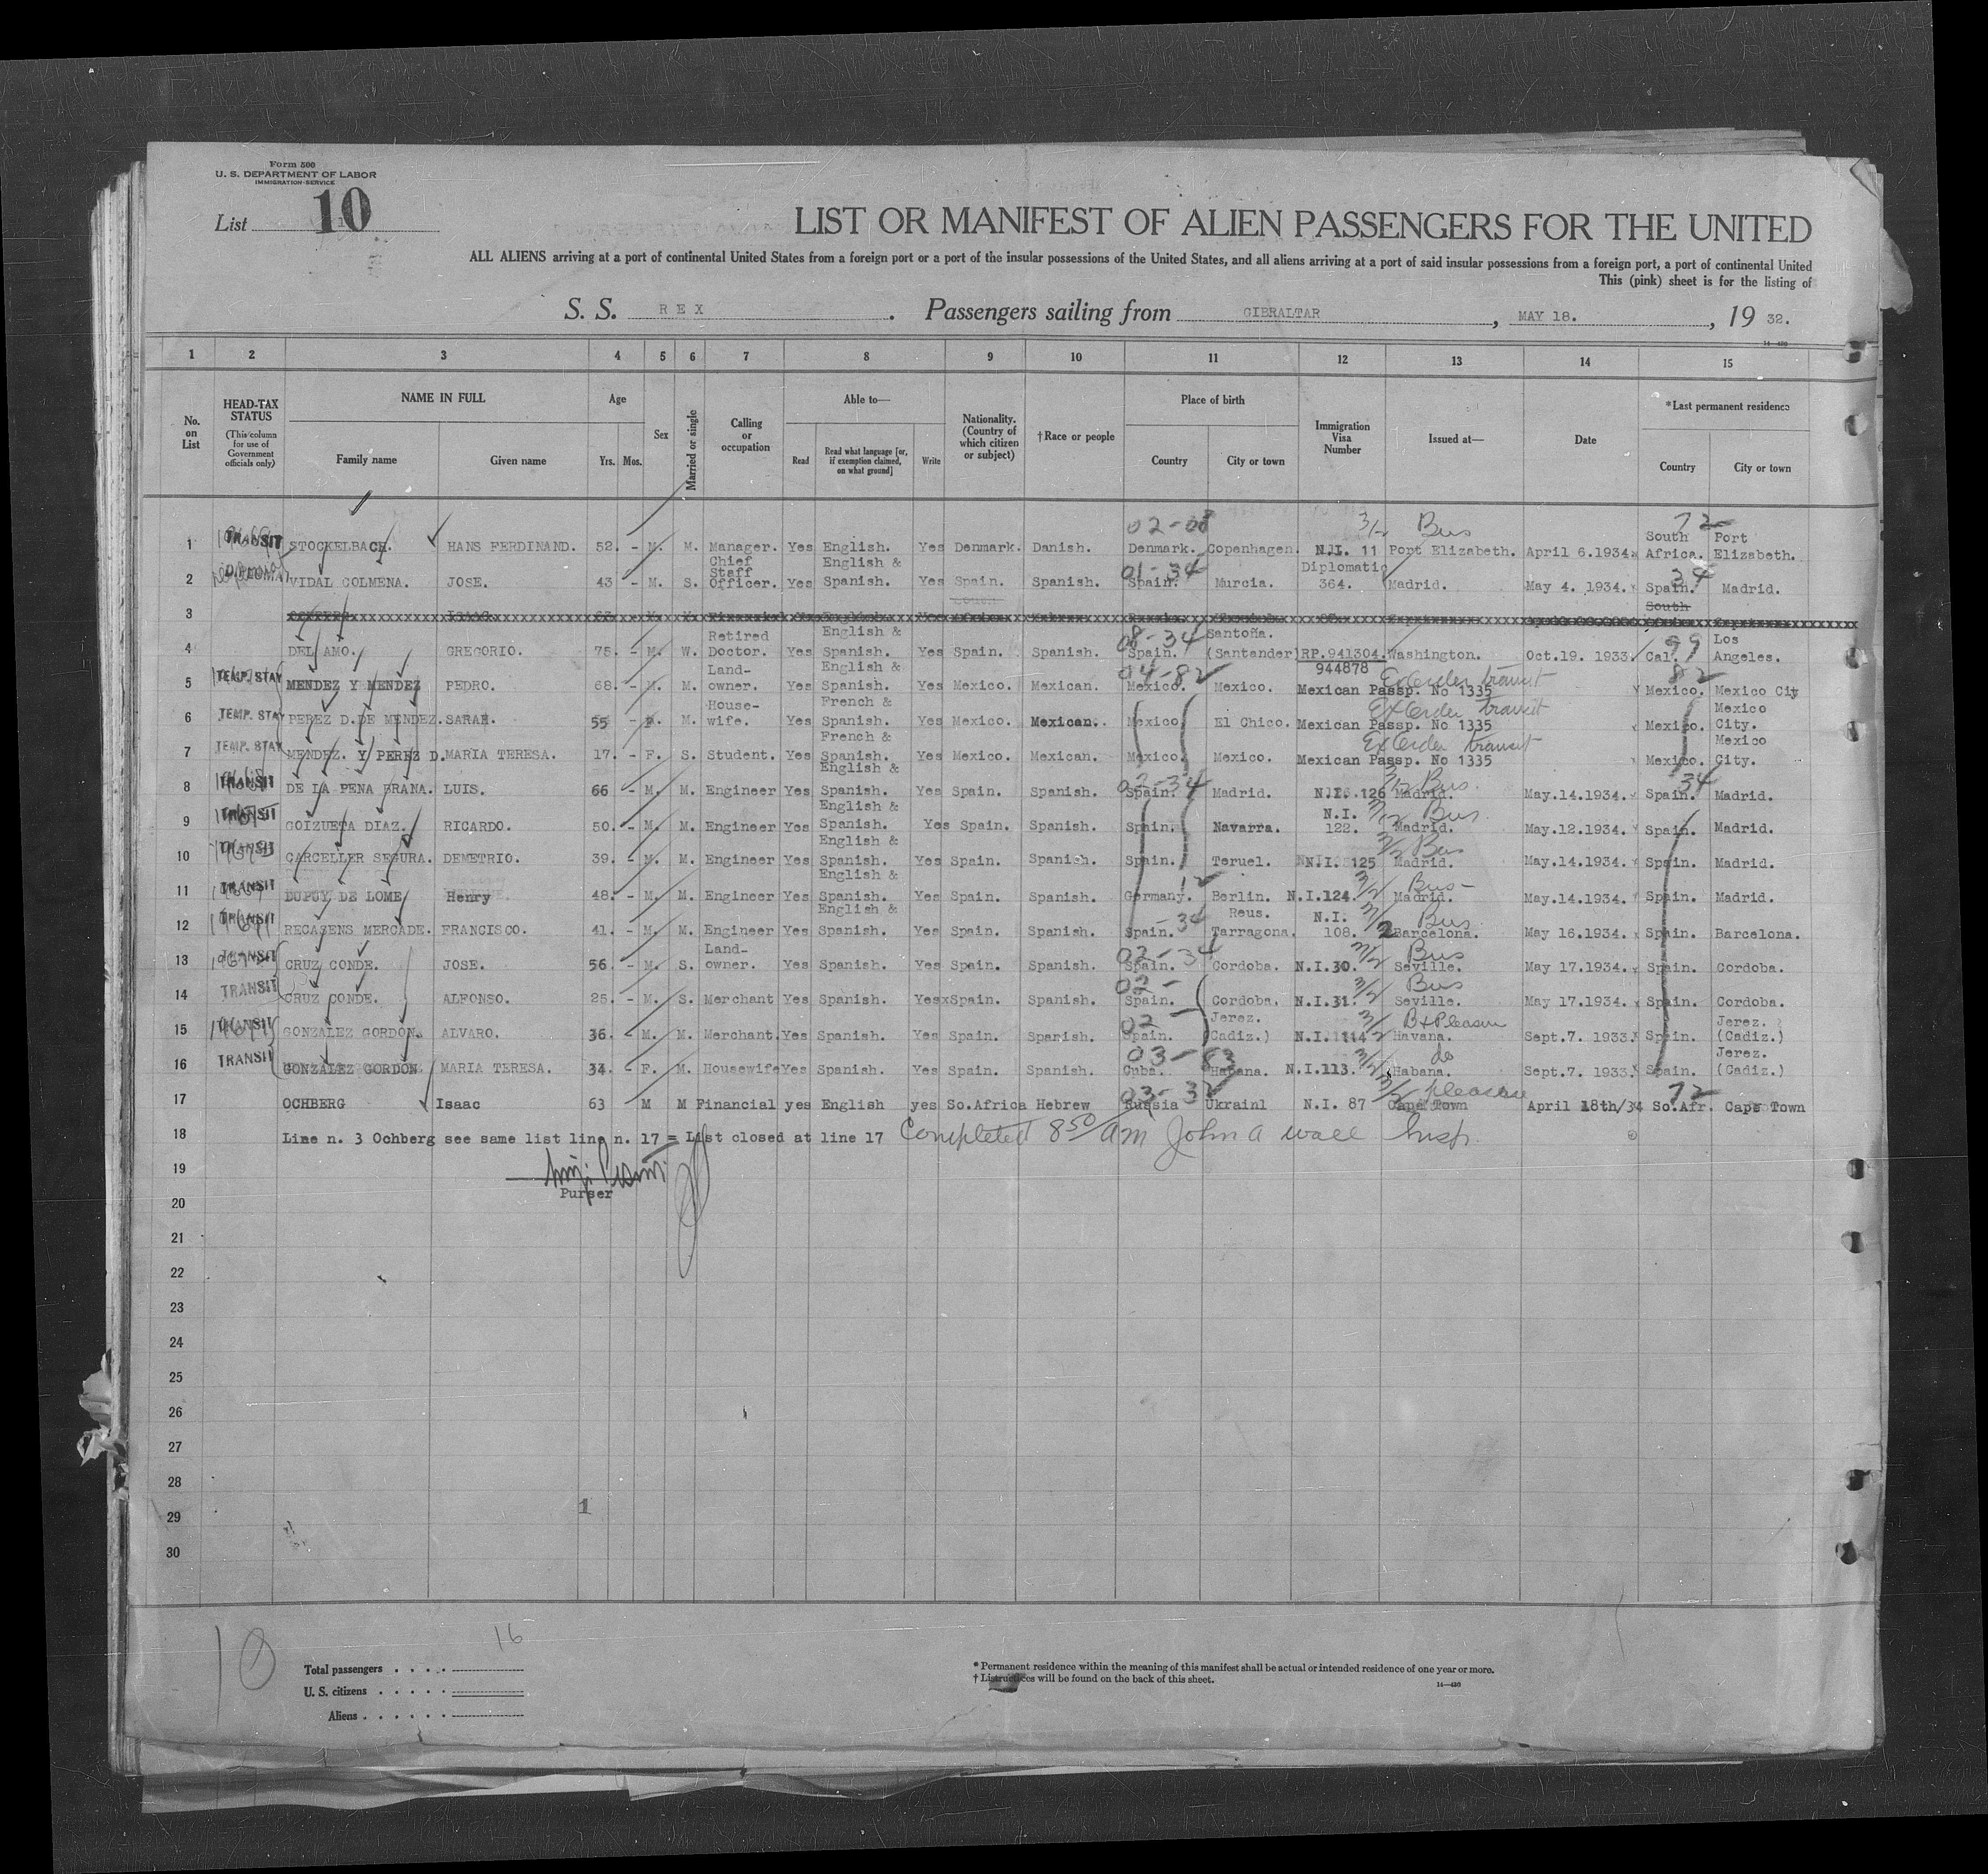 Form 500
U. S. DEPARTMENT OF LABOR
IMMIGRATION SERVICE
List 10
LIST OR MANIFEST OF ALIEN PASSENGERS FOR THE UNITED
ALL ALIENS arriving at a port of continental United States from a foreign port or a port of the insular possessions of the United States, and all aliens arriving at a port of said insular possessions from a foreign port, a port of continental United
This (pink) sheet is for the listing of
S. S. REX. Passengers sailing from GIBRALTAR, MAY 18., 19 32.
14—430
1 2 3 4 5 6 7 8 9 10 11 12 13 14 15
No. on List
HEAD-TAX STATUS (This column for use of Government officials only)
NAME IN FULL Family name Given name
Age Yrs. Mos.
Sex
Married or single
Calling or occupation
Able to— Read Read what language [or, if exemption claimed, on what ground] Write
Nationality. (Country of which citizen or subject)
†Race or people
Place of birth Country City or town
Immigration Visa Number
Issued at—
Date
*Last permanent residence Country City or town
02-08 3/- Bus 72
1 TRANSIT STOCKELBACH. HANS FERDINAND. 52. - M. M. Manager. Yes English. Yes Denmark. Danish. Denmark. Copenhagen. N.I. 11 Port Elizabeth. April 6.1934. South Africa. Port Elizabeth.
01-34 34
2 DIPLOMAT VIDAL COLMENA. JOSE. 43 - M. S. Chief Staff Officer. Yes English & Spanish. Yes Spain. Spanish. Spain. Murcia. Diplomatic 364. Madrid. May 4. 1934. Spain. Madrid.
3 ISAAC. 63. South
08-34 99
4 DEL AMO. GREGORIO. 75. - M. W. Retired Doctor. Yes English & Spanish. Yes Spain. Spanish. Spain. Santoña. (Santander) RP.941304. 944878 Washington. Oct.19. 1933. Cal. Los Angeles.
04-82 Ex Order transit 82
5 TEMP. STAY MENDEZ Y MENDEZ PEDRO. 68. - M. M. Land-owner. Yes English & Spanish. Yes Mexico. Mexican. Mexico. Mexico. Mexican Passp. No 1335 Mexico. Mexico City
Ex Order transit
6 TEMP. STAY PEREZ D.DE MENDEZ. SARAH. 55 - F. M. House-wife. Yes French & Spanish. Yes Mexico. Mexican. Mexico. El Chico. Mexican Passp. No 1335 Mexico. Mexico City.
Ex Order transit
7 TEMP. STAY MENDEZ. Y PEREZ D. MARIA TERESA. 17. - F. S. Student. Yes French & Spanish. Yes Mexico. Mexican. Mexico. Mexico. Mexican Passp. No 1335 Mexico. Mexico City.
02-34 3/2 Bus. 34
8 TRANSIT DE LA PENA BRANA. LUIS. 66 - M. M. Engineer Yes English & Spanish. Yes Spain. Spanish. Spain. Madrid. N.I. 126 Madrid. May.14.1934. Spain. Madrid.
3/2 Bus.
9 TRANSIT GOIZUETA DIAZ. RICARDO. 50. - M. M. Engineer Yes English & Spanish. Yes Spain. Spanish. Spain. Navarra. N.I. 122. Madrid. May.12.1934. Spain. Madrid.
3/2 Bus
10 TRANSIT CARCELLER SEGURA. DEMETRIO. 39. - M. M. Engineer Yes English & Spanish. Yes Spain. Spanish. Spain. Teruel. N.I. 125 Madrid. May.14.1934. Spain. Madrid.
12 3/2 Bus-
11 TRANSIT DUPUY DE LOME Henry 48. - M. M. Engineer Yes English & Spanish. Yes Spain. Spanish. Germany. Berlin. N.I.124. Madrid. May.14.1934. Spain. Madrid.
-34 3/2 Bus
12 TRANSIT RECASENS MERCADE. FRANCISCO. 41. - M. M. Engineer Yes English & Spanish. Yes Spain. Spanish. Spain. Reus. Tarragona. N.I. 108. Barcelona. May 16.1934. Spain. Barcelona.
02-34 3/2 Bus
13 TRANSIT CRUZ CONDE. JOSE. 56. - M. S. Land-owner. Yes Spanish. Yes Spain. Spanish. Spain. Cordoba. N.I.30. Seville. May 17.1934. Spain. Cordoba.
02- 3/2 Bus
14 TRANSIT CRUZ CONDE. ALFONSO. 25. - M. S. Merchant Yes Spanish. Yes Spain. Spanish. Spain. Cordoba. N.I.31. Seville. May 17.1934. Spain. Cordoba.
02- 3/2 B+Pleasure
15 TRANSIT GONZALEZ GORDON. ALVARO. 36. - M. M. Merchant. Yes Spanish. Yes Spain. Spanish. Spain. Jerez. (Cadiz.) N.I.114 Havana. Sept.7. 1933. Spain. Jerez. (Cadiz.)
03-83 3/2 do
16 TRANSIT GONZALEZ GORDON. MARIA TERESA. 34. - F. M. Housewife Yes Spanish. Yes Spain. Spanish. Cuba. Habana. N.I.113. Habana. Sept.7. 1933. Spain. Jerez. (Cadiz.)
03-32 3/2 pleasure 72
17 OCHBERG Isaac 63 M M Financial yes English yes So.Africa Hebrew Russia Ukrainl N.I. 87 Cape Town April 18th/34 So.Afr. Cape Town
18 Line n. 3 Ochberg see same list line n. 17 = List closed at line 17 Completed 8 50 am John A Wall Insp.
19
Purser
20
21
22
23
24
25
26
27
28
1
29
30
10
16
Total passengers
U. S. citizens
Aliens
* Permanent residence within the meaning of this manifest shall be actual or intended residence of one year or more.
† List of races will be found on the back of this sheet.
14—430